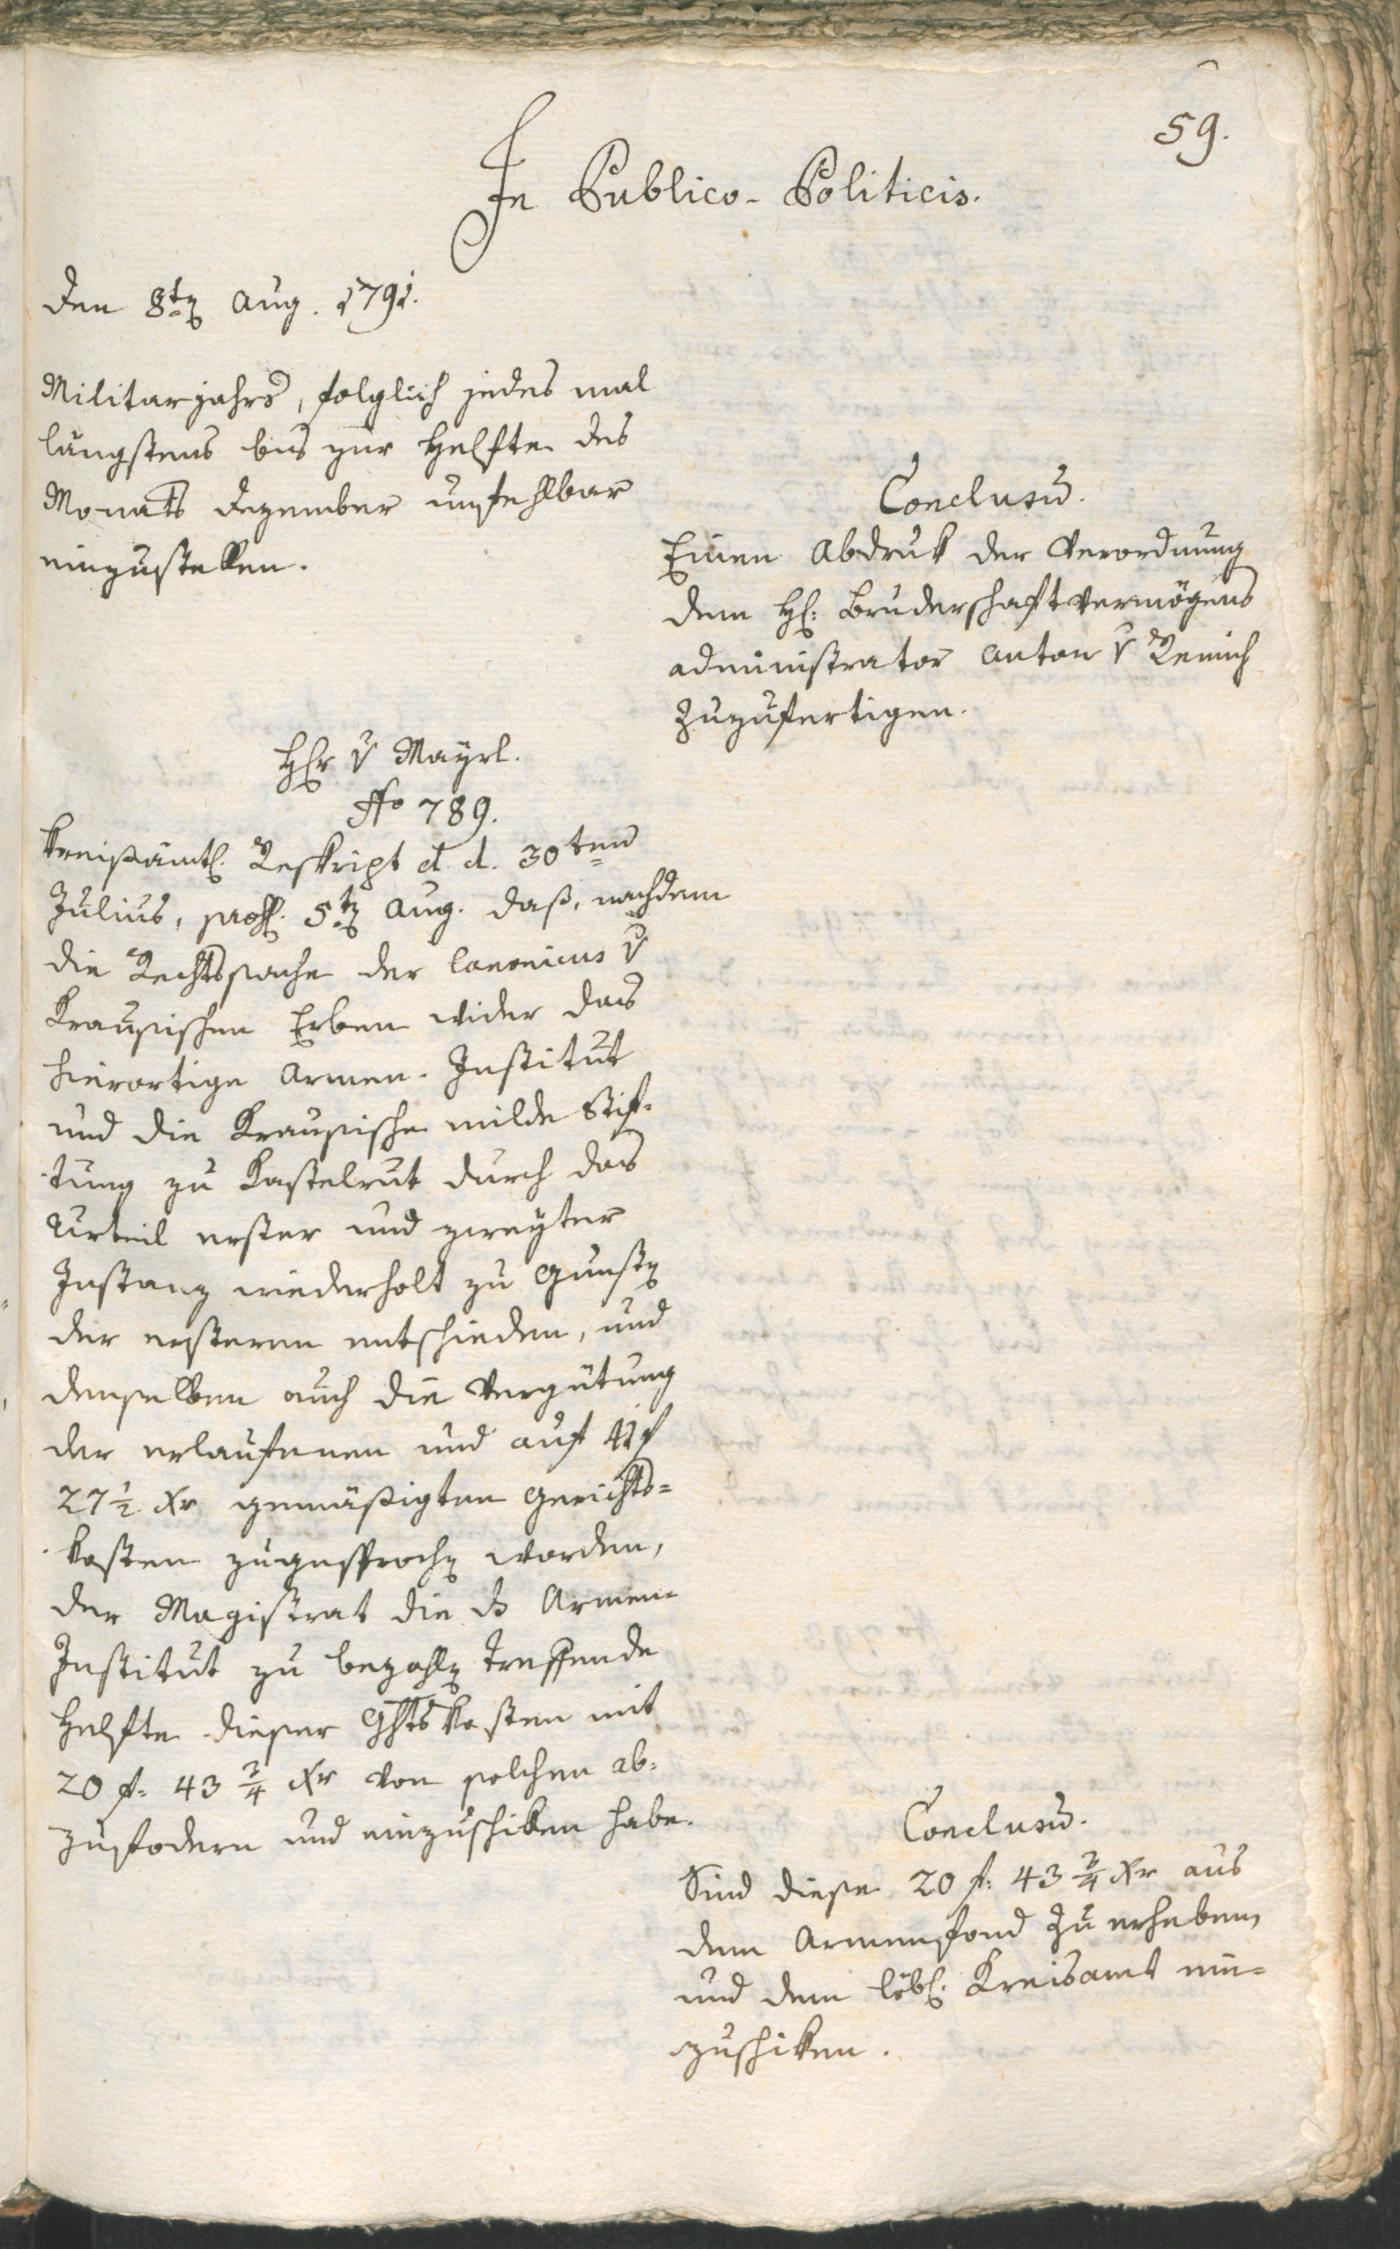 59.
In Publico-Politicis.
den 8ten Aug. 1791.
Militarjahrs, folglich jedes mal
längstens bis zur Helfte des
Monats Dezember unfehlbar
einzustellen.
Conclusū.
Einen Abdruk der Verordnung
dem H: Bruderschaftvermögens
administrator Anton v Remich
zuzufertigen.
Hr v Mayrl.
No 789.
Kreißämtl. Reskript d. d. 30ten
Julius, präs. 5ten Aug. daß, nachdem
die Rechtssache der Canonicus v
Krausischen Erben wider das
hierortige Armen-Institut
und die Krausische milde Stif-
tung zu Kastelrut durch das
Urteil erster und zweyter
Instanz wiederholt zu Gunsten
der ersteren entschieden, und
denselben auch die Vergütung
der erlaufenen und auf 41 f
27 1/2 Xr gemäßigten Gerichts=
kosten zugesprochen worden,
der Magistrat die ds Armen-
Institut zu bezahlen treffende
Helfte dieser Ghtskosten mit
20 f: 43 3/4 Xr von solchem ab-
zufodern und einzuschiken habe.
Conclusū.
Sind diese 20 f: 43 3/4 Xr aus
dem Armenfond zu erheben,
und dem löbl. Kreisamt ein=
zuschiken.